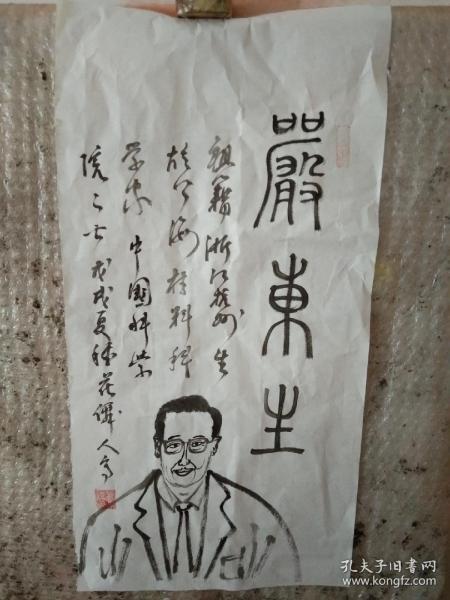 嚴東生
祖籍浙江杭州生
於上海材料科
学家中國科学
院々士戊戌夏花人写
孔夫子旧书网
www.kongfz.com